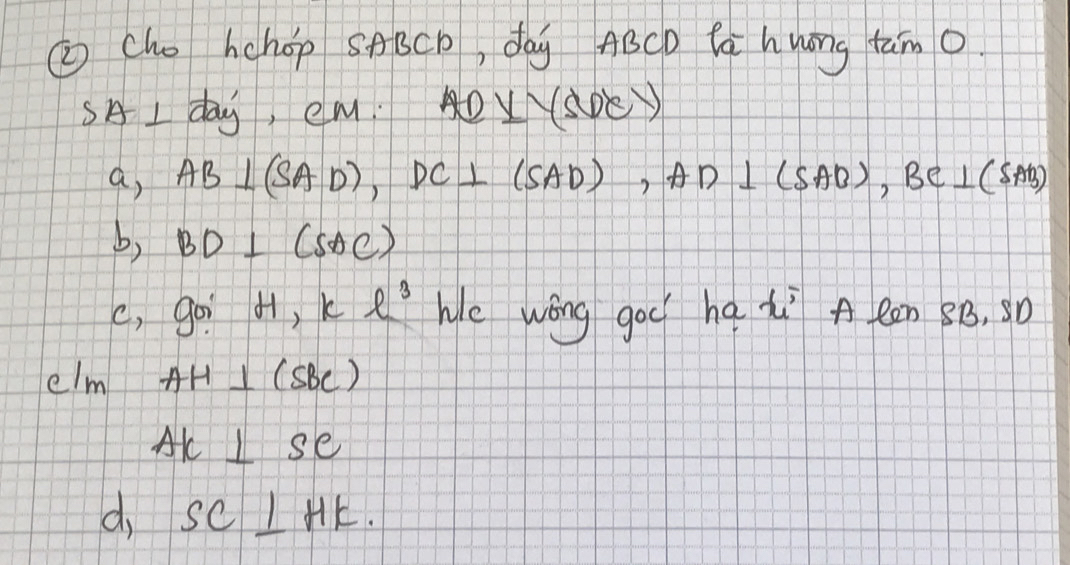 ② Cho hchóp SABCD, đáy ABCD là h vuông tâm O.
SA ⊥ đáy, CM:
a, AB ⊥ (SAD), DC ⊥ (SAD), AD ⊥ (SAB), BC ⊥ (SAB)
b, BD ⊥ (SAC)
c, gọi H, K l³ h/c vuông góc hạ từ A lên SB, SD
c/m AH ⊥ (SBC)
AK ⊥ SC
d, SC ⊥ HK.